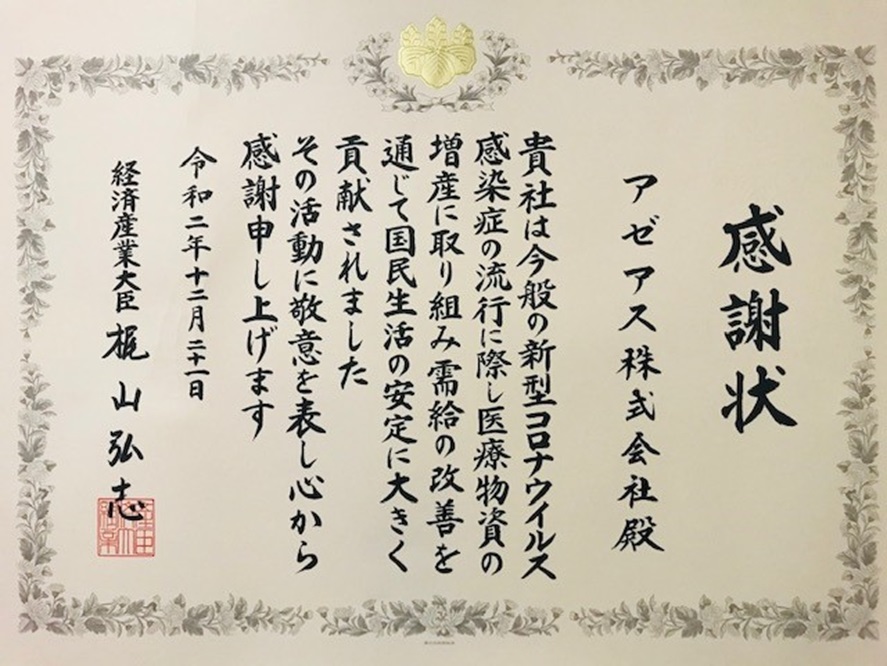 感謝状
アゼアス株式会社殿
貴社は今般の新型コロナウイルス
感染症の流行に際し医療物資の
増産に取り組み需給の改善を
通じて国民生活の安定に大きく
貢献されました
その活動に敬意を表し心から
感謝申し上げます
令和二年十二月二十一日
経済産業大臣 梶山弘志